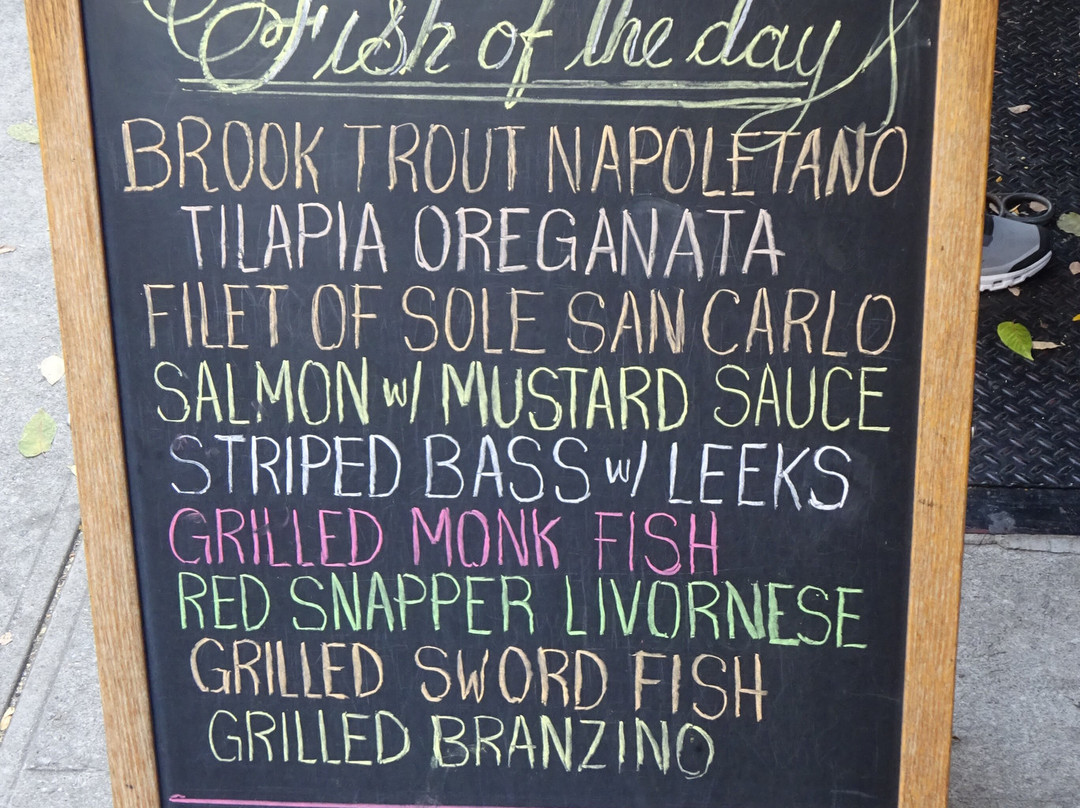 Fish of the day
BROOK TROUT NAPOLETANO
TILAPIA OREGANATA
FILET OF SOLE SAN CARLO
SALMON w/ MUSTARD SAUCE
STRIPED BASS w/ LEEKS
GRILLED MONK FISH
RED SNAPPER LIVORNESE
GRILLED SWORD FISH
GRILLED BRANZINO